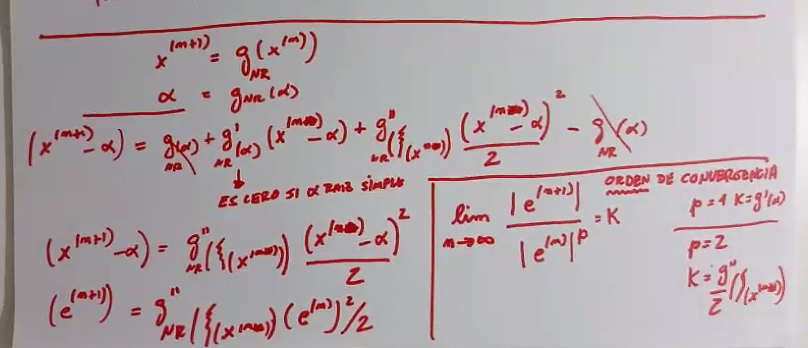 x^(m+1) = g_NR(x^(m))
α = g_NR(α)
(x^(m+1) - α) = g_NR(α) + g'_NR(α) (x^(m) - α) + g''_NR(ξ(x^(m))) (x^(m) - α)^2 / 2 - g_NR(α)
ES CERO SI α RAIZ SIMPLE
(x^(m+1) - α) = g''_NR(ξ(x^(m))) (x^(m) - α)^2 / 2
(e^(m+1)) = g''_NR(ξ(x^(m))) (e^(m))^2/2
ORDEN DE CONVERGENCIA
lim m→∞ |e^(m+1)| / |e^(m)|^p = K
p=1 K=g'(α)
p=2
K = g''/2 (ξ(x^(m)))